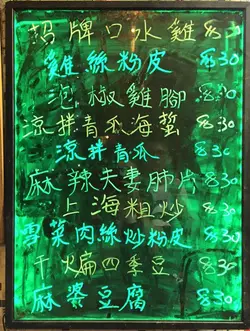 招牌口水雞 8.30
雞絲粉皮 8.30
泡椒雞腳 8.30
涼拌青瓜海蜇 8.30
涼拌青瓜 8.30
麻辣夫妻肺片 8.30
上海粗炒 8.30
雪菜肉絲炒粉皮 8.30
干煸四季豆 8.30
麻婆豆腐 8.30